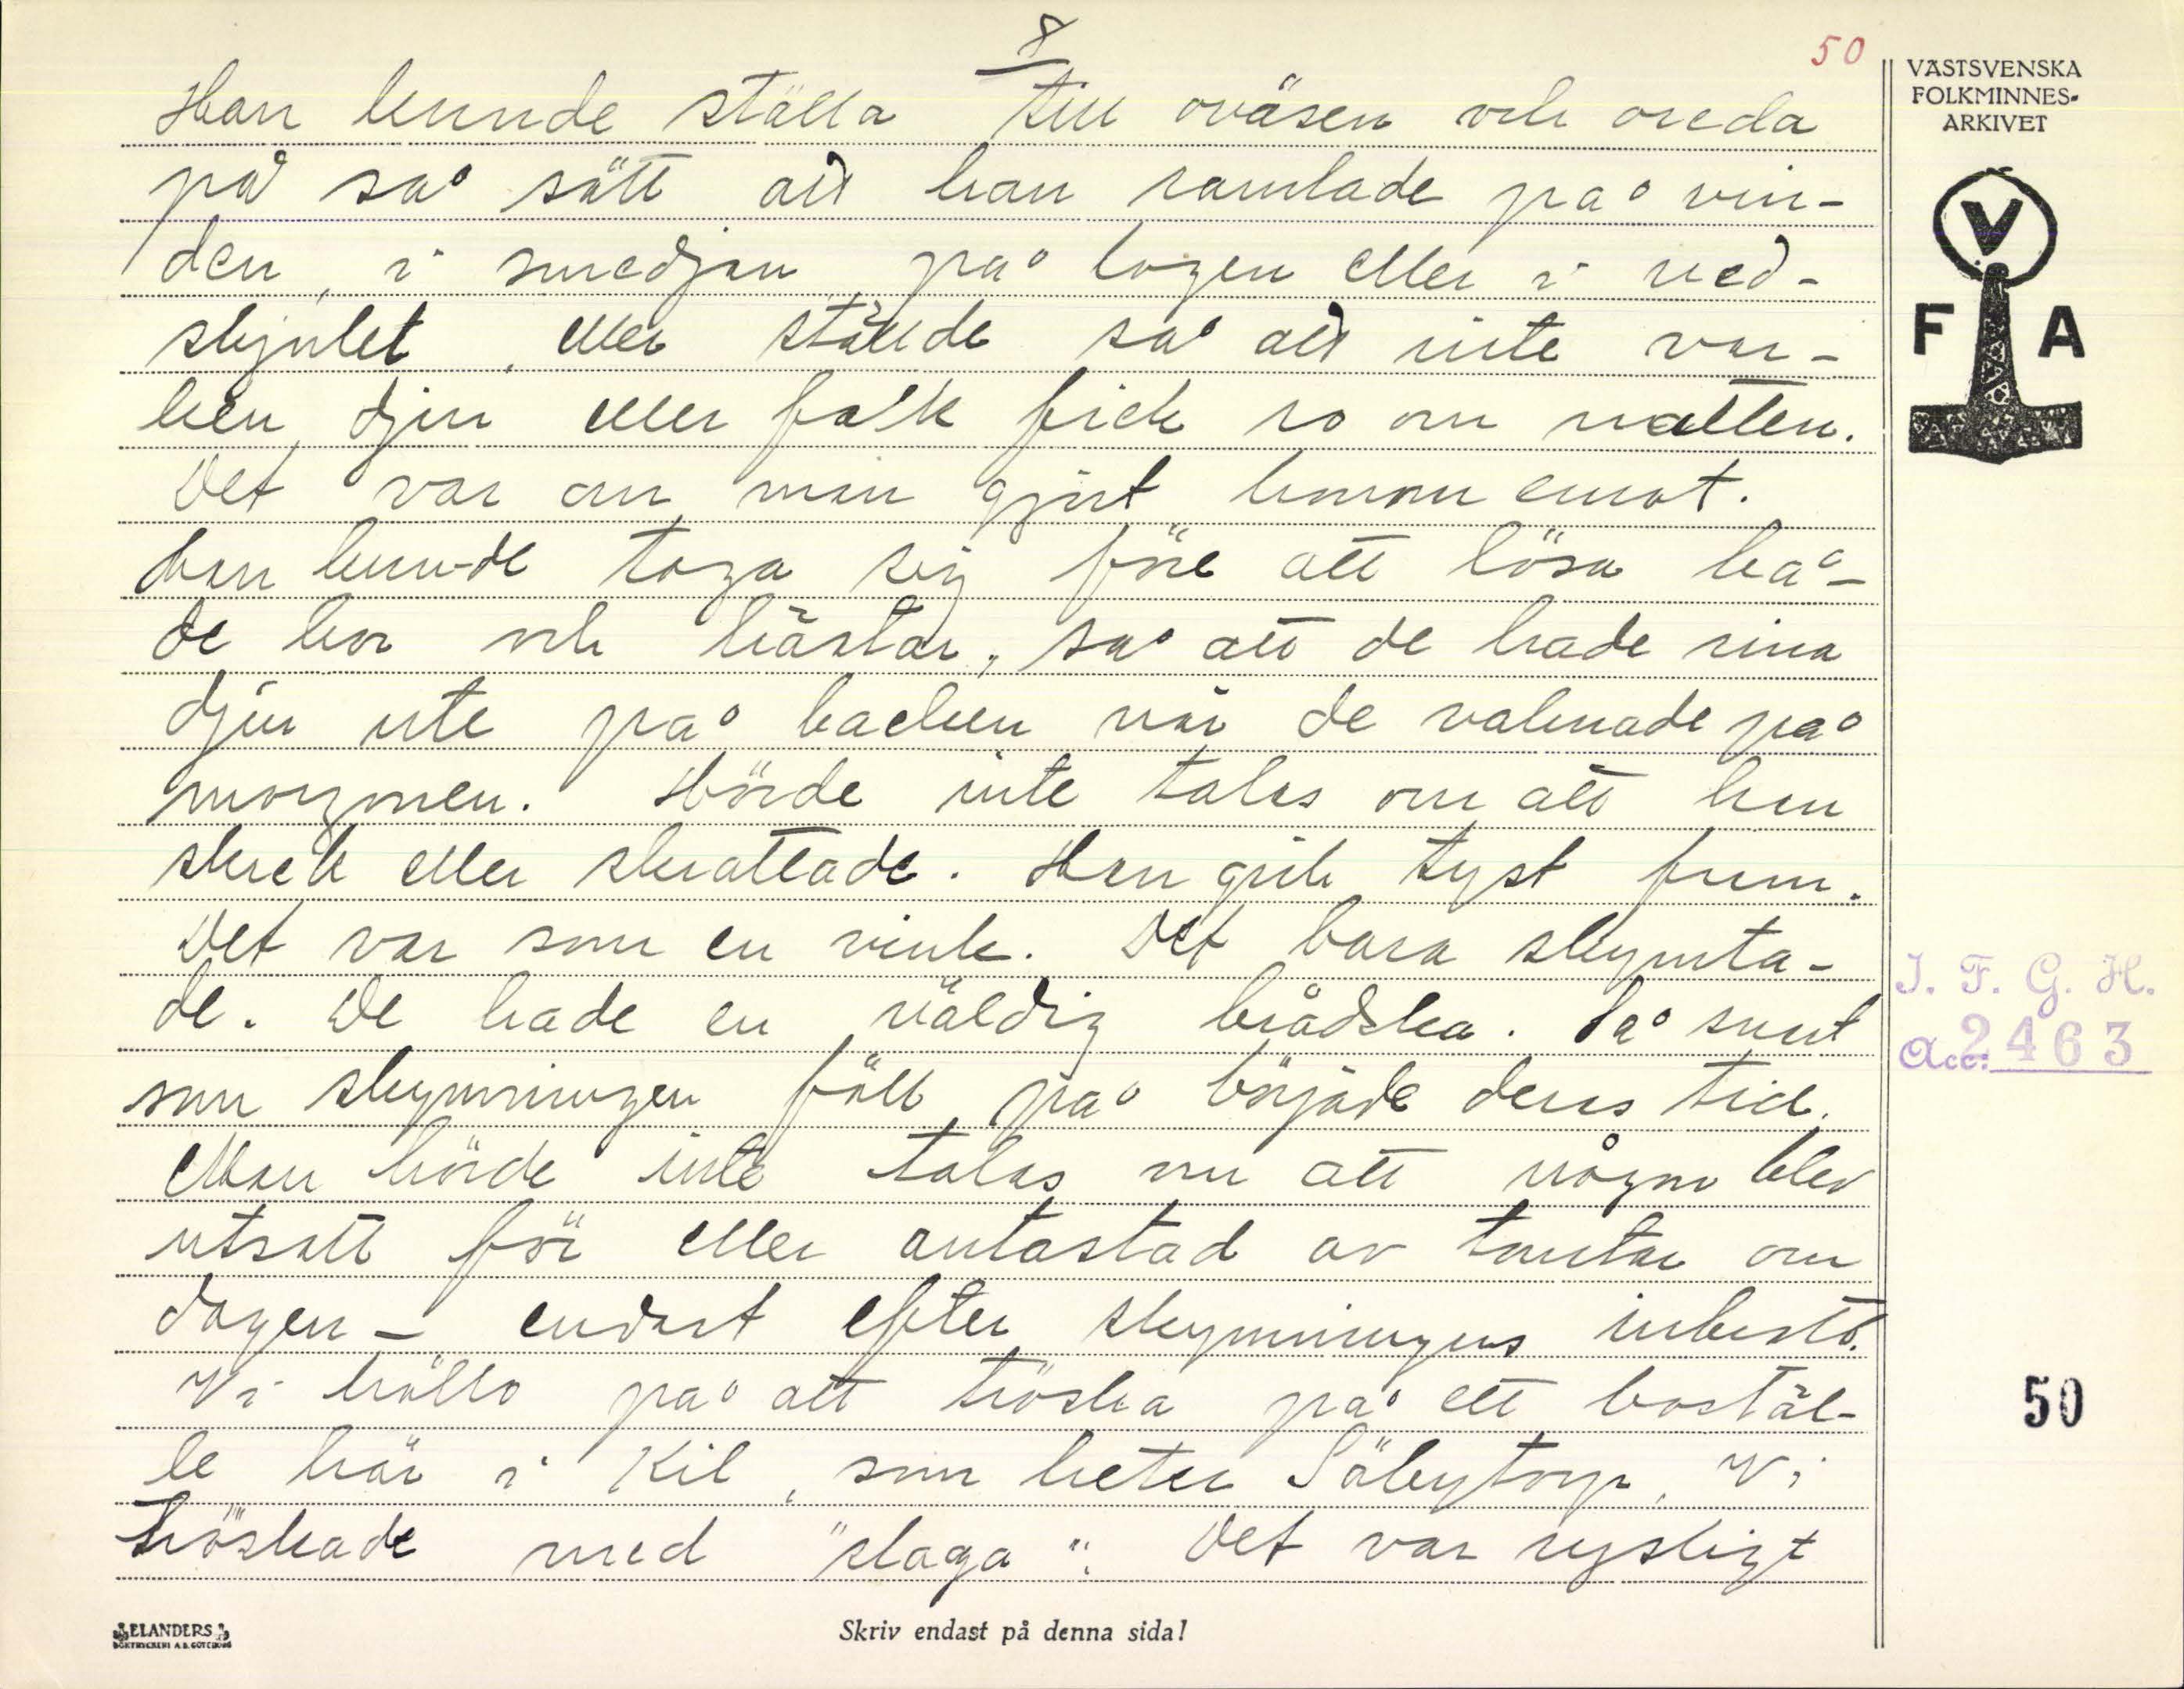 8
50
VÄSTSVENSKA
FOLKMINNES-
ARKIVET
V
F A
Han kunde ställa till oväsen och oreda
på så sätt att han ramlade på vin-
den, i smedjan, på logen eller i ved-
skjulet, eller ställde så att inte var-
ken djur eller folk fick ro om natten.
Det var om min gjort honom emot.
Han kunde taga sig före att lösa bå-
de kor och hästar, så att de hade sina
djur ute på backen när de vaknade på
morgonen. Hörde inte talas om att han
skrek eller skrattade. Han gick tyst fram.
Det var som en vink. Det bara skymta-
de. De hade en väldig brådska. Så snart
som skymningen föll på började deras tid.
Man hörde inte talas om att någon blev
utsatt för eller antastad av tomtar om
dagen - endast efter skymningens inbrott.
Vi höllo på att tröska på ett bostäl-
le här i Kil, som heter Säbytorp. Vi
tröskade med "slaga". Det var rysligt
I. F. G. H.
Acc: 2463
50
ELANDERS
BOKTRYCKERI A.B. GÖTEBORG
Skriv endast på denna sida!